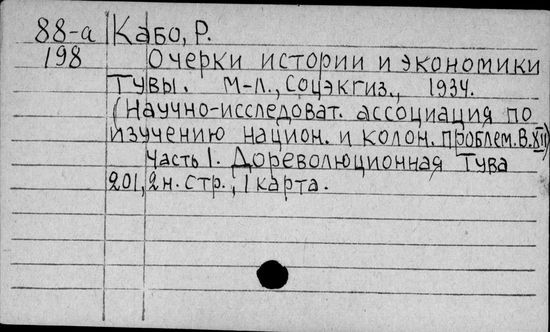 88-а Кабо, Р.
198 Очерки истории и экономики
Тувы. М-Л., Соцэкгиз., 1934.
(Научно-исследоват. ассоциация по
изучению национ. и колон. проблем. В. XII)
Часть 1. Дореволюционная Тува
201, 2 н. стр., 1 карта.